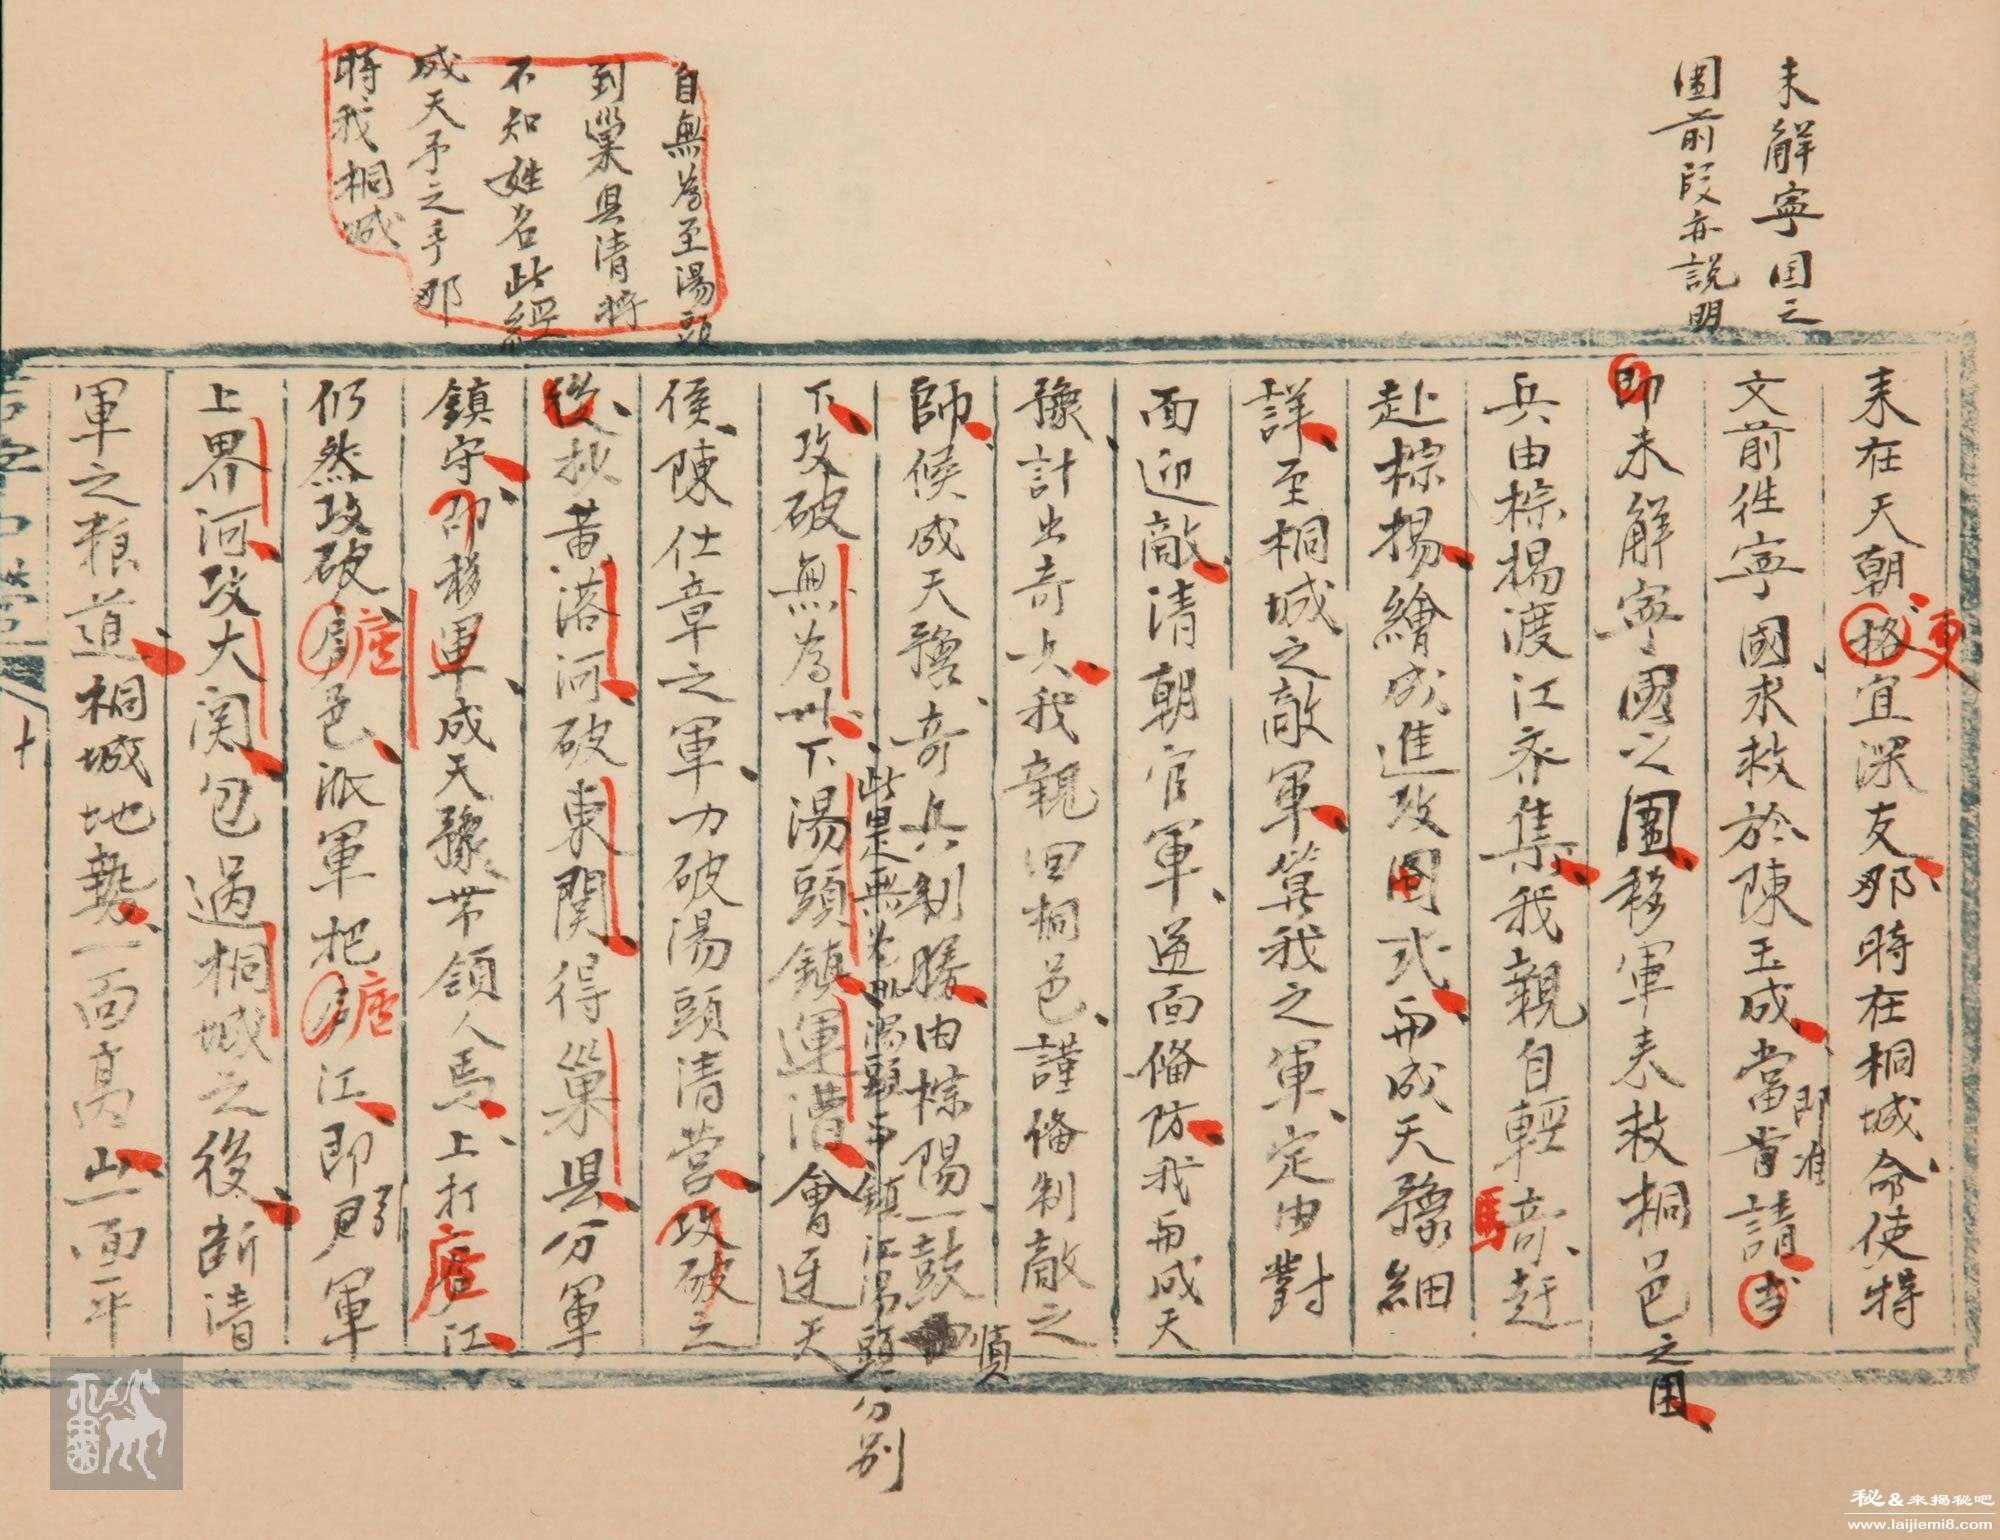 未解寧国之
圍前段亦說明
来在天朝格宜深友那時在桐城命使特
更
文前往寧國求救於陳玉成當肯請
即准
即未解寧國之圍移軍来救桐邑之困
兵由棕楊渡江齐集我親自輕騎赶
馬
赴棕楊繪成進攻圖式而成天豫細
詳至桐城之敵軍算我之軍定由對
面迎敵清朝官軍並面俻防我而成天
豫計出奇兵我親回桐邑謹俻制敵之
師候成天豫奇兵制勝由棕陽一鼓
順
此是無為州湯頭市鎮江湯頭分別
下攻破無為州下湯頭鎮運漕會迓天
侯陳仕章之軍力破湯頭清营攻破之
後抄黃落河破東関得巢县分軍
鎮守即移軍成天豫带領人馬上打庐江
仍然攻破庐邑派軍把庐江即引軍
上界河攻大関包過桐城之後断清
軍之粮道桐城地勢一面高山一面平
自無為至湯頭
到巢县清將
不知姓名此經
成天予之手那
時我桐城
十
秘&来揭秘吧
www.laijiemi8.com